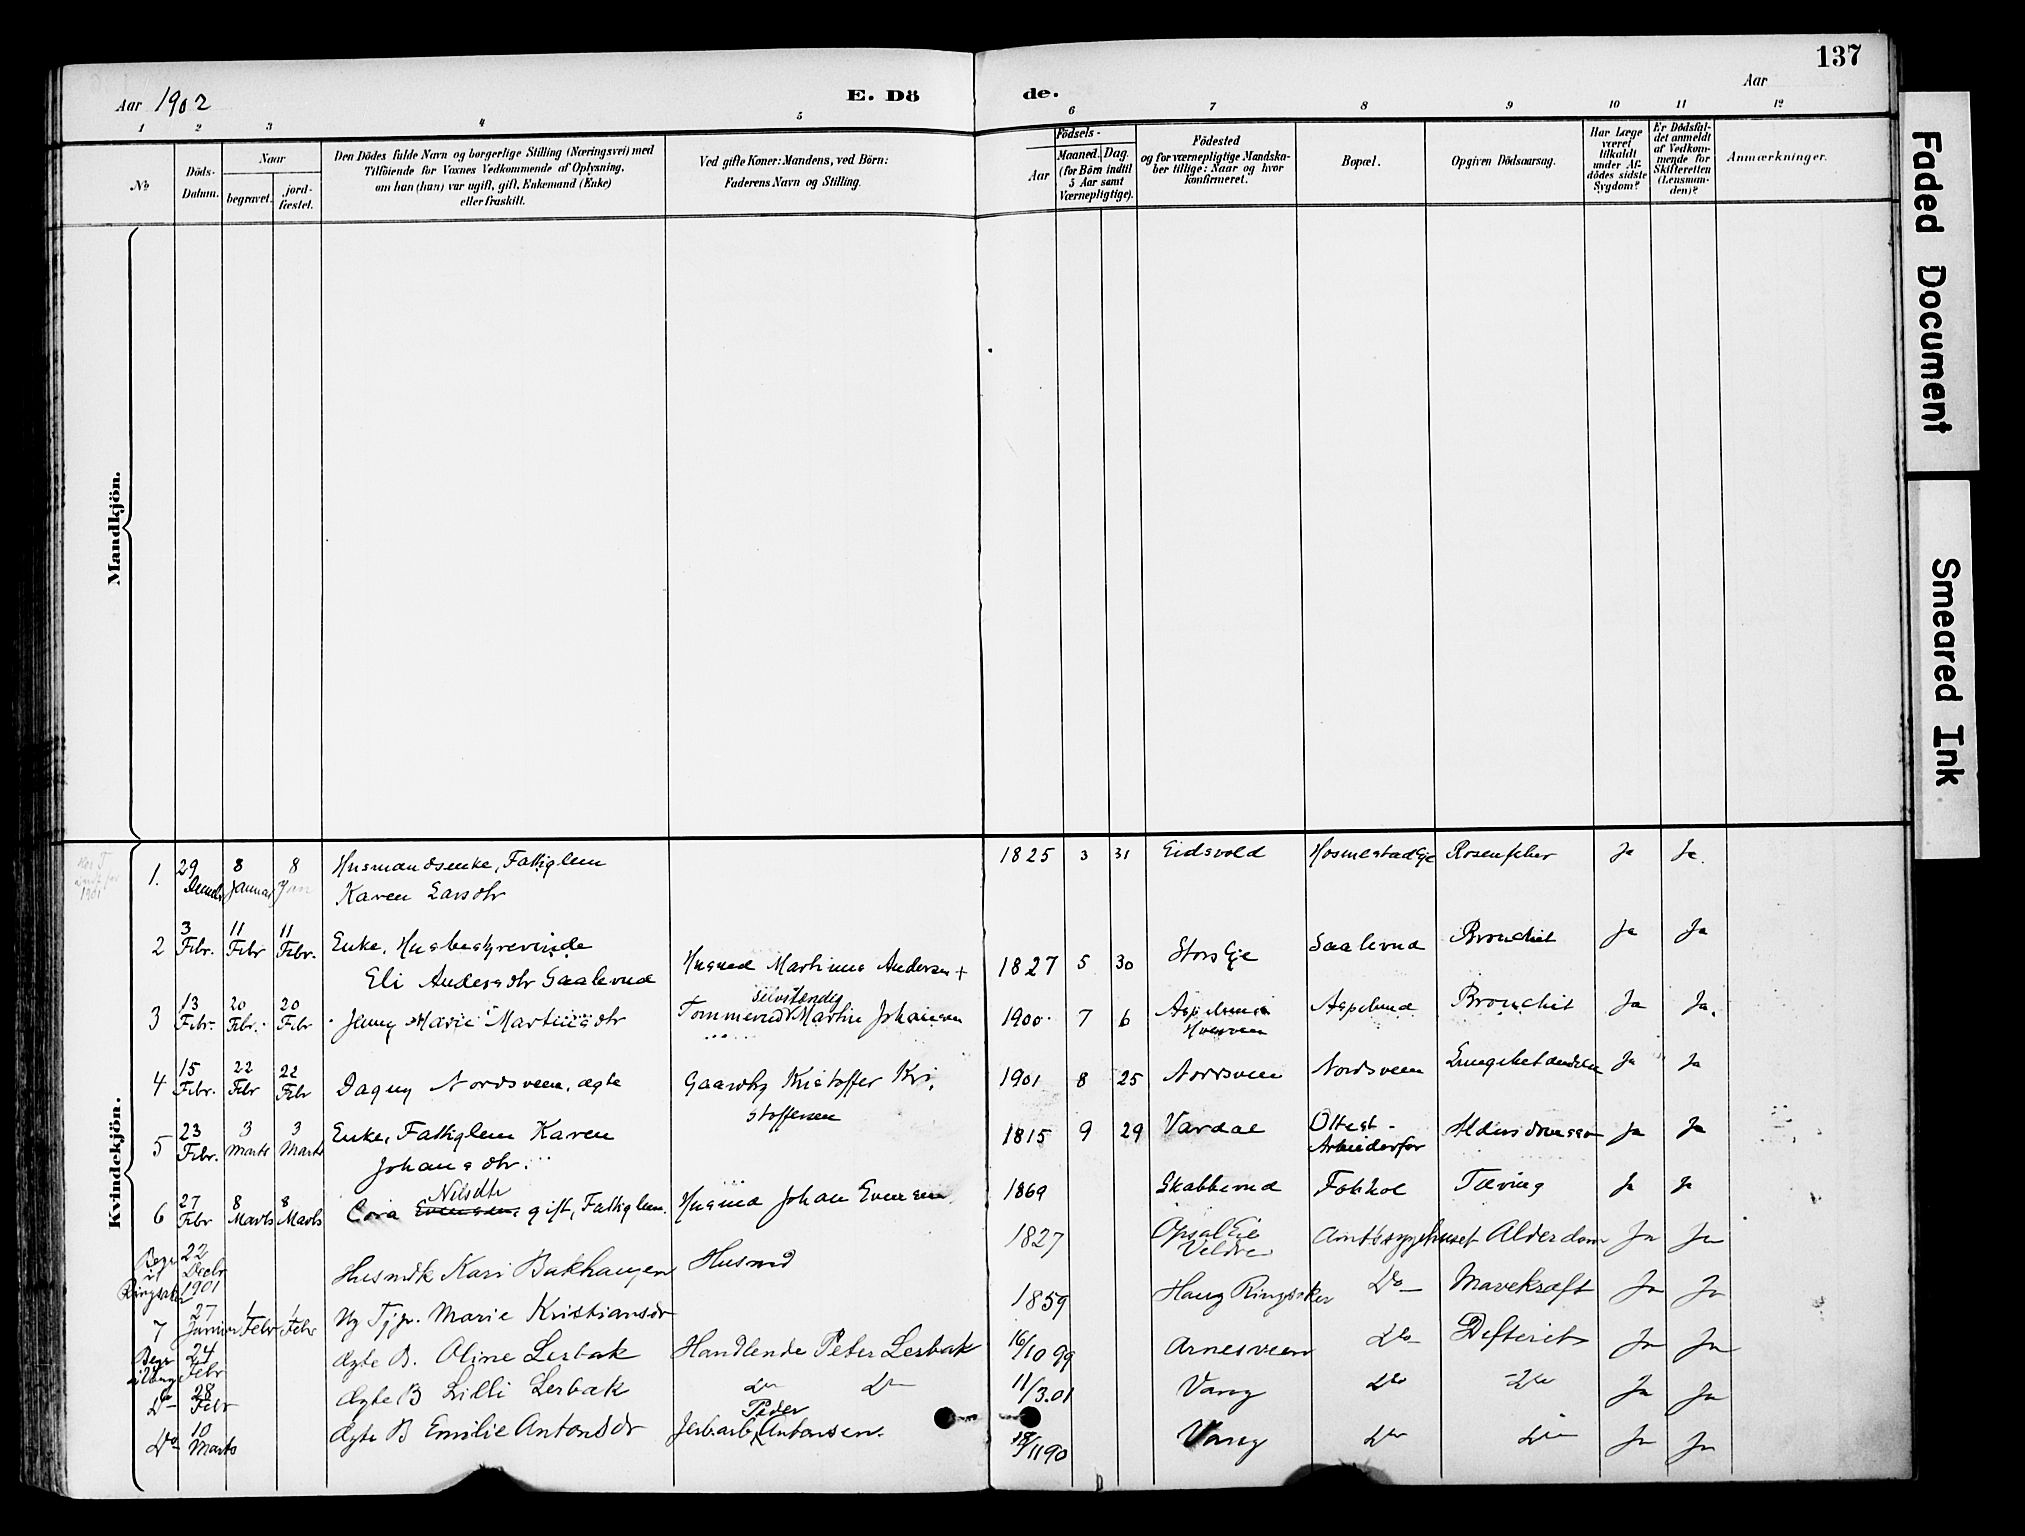 137
Aar 1902
E. Dö
de.
Aar
1 2 3 4 5 6 7 8 9 10 11 12
No
Döds-
Datum.
Naar
begravet.
jord-
fæstet.
Den Dödes fulde Navn og borgerlige Stilling (Næringsvei) med
Tilföiende for Voxnes Vedkommende af Oplysning,
om han (hun) var ugift, gift, Enkemand (Enke)
eller fraskilt.
Ved gifte Koner: Mandens, ved Börn:
Faderens Navn og Stilling.
Födsels-
Aar
Maaned. Dag.
(for Börn indtil
5 Aar samt
Værnepligtige).
Födested
og for værnepligtige Mandska-
ber tillige: Naar og hvor
konfirmeret.
Bopæl.
Opgiven Dödsaarsag.
Har Læge
været
tilkaldt
under Af-
dödes sidste
Sygdom?
Er Dödsfal-
det anmeldt
af Vedkom-
mende for
Skifteretten
(Lensman-
den)?
Anmærkninger.
Mandkjön.
Kvindekjön.
1901
1. 29 8 Januar 8 Jan Husmandsenke, Fattiglem 1825 3 31 Eidsvold Rosenfeber Ja Ja.
Karen Larsdtr
2 3 Febr. 11 Febr 11 Febr. Enke, Husbestyrerinde
Eli Andersdtr Saalerud Husmd Martinus Andersen + 1827 5 30 Stors Eje Saalerud Bronchit Ja Ja
3 13 Febr. 20 Febr. 20 Febr Jenny Marie Martinsdtr selvstændig
Tømmermd Martin Johansen 1900 7 6 Aspelund Bronchit Ja Ja.
4 15 Febr. 22 Febr 22 Febr Dagny Nordsveen, ægte Gaardbr Kristoffer Kri-
stoffersen 1901 8 25 Nordsveen Nordsveen Lungebetændelse Ja Ja
5 23 Febr. 3 Marts 3 Marts Enke, Fattiglem Karen
Johansdtr. 1815 9 29 Vardal Ottest-
Arbeiderfor Ja Ja
Nilsdtr
6 27 Febr 8 Marts 8 Marts gift, Fattiglem. Husmd Johan Evensen 1869 Skabberud Fokhol Tæring Ja Ja
Begr
i
Ringsaker 22
Decbr
1901 Husmdk Kari Bakhaugen Husmd 1827 Opsal Eie
Veldre Amtssygehuset Alderdom Ja Ja
7 27 Januar 1 Febr 1 Febr Ug Tj.p. Marie Kristiansdr 1859 Haug Ringsaker Do Mavekræft Ja Ja
Begr 24
Febr Ægte B. Oline Lerbak Handlende Peter Lerbak 16/10 99 Arnesveen Do Difterit Ja Ja
Do 28
Febr Ægte B Lilli Lerbak Do Do 11/3.01 Vang Do Do Ja Ja
Do 10
Marts Ægte B Emilie Antonsdr Peder
Antonsen. Vang Do Do Ja Ja
Faded Document
Smeared Ink